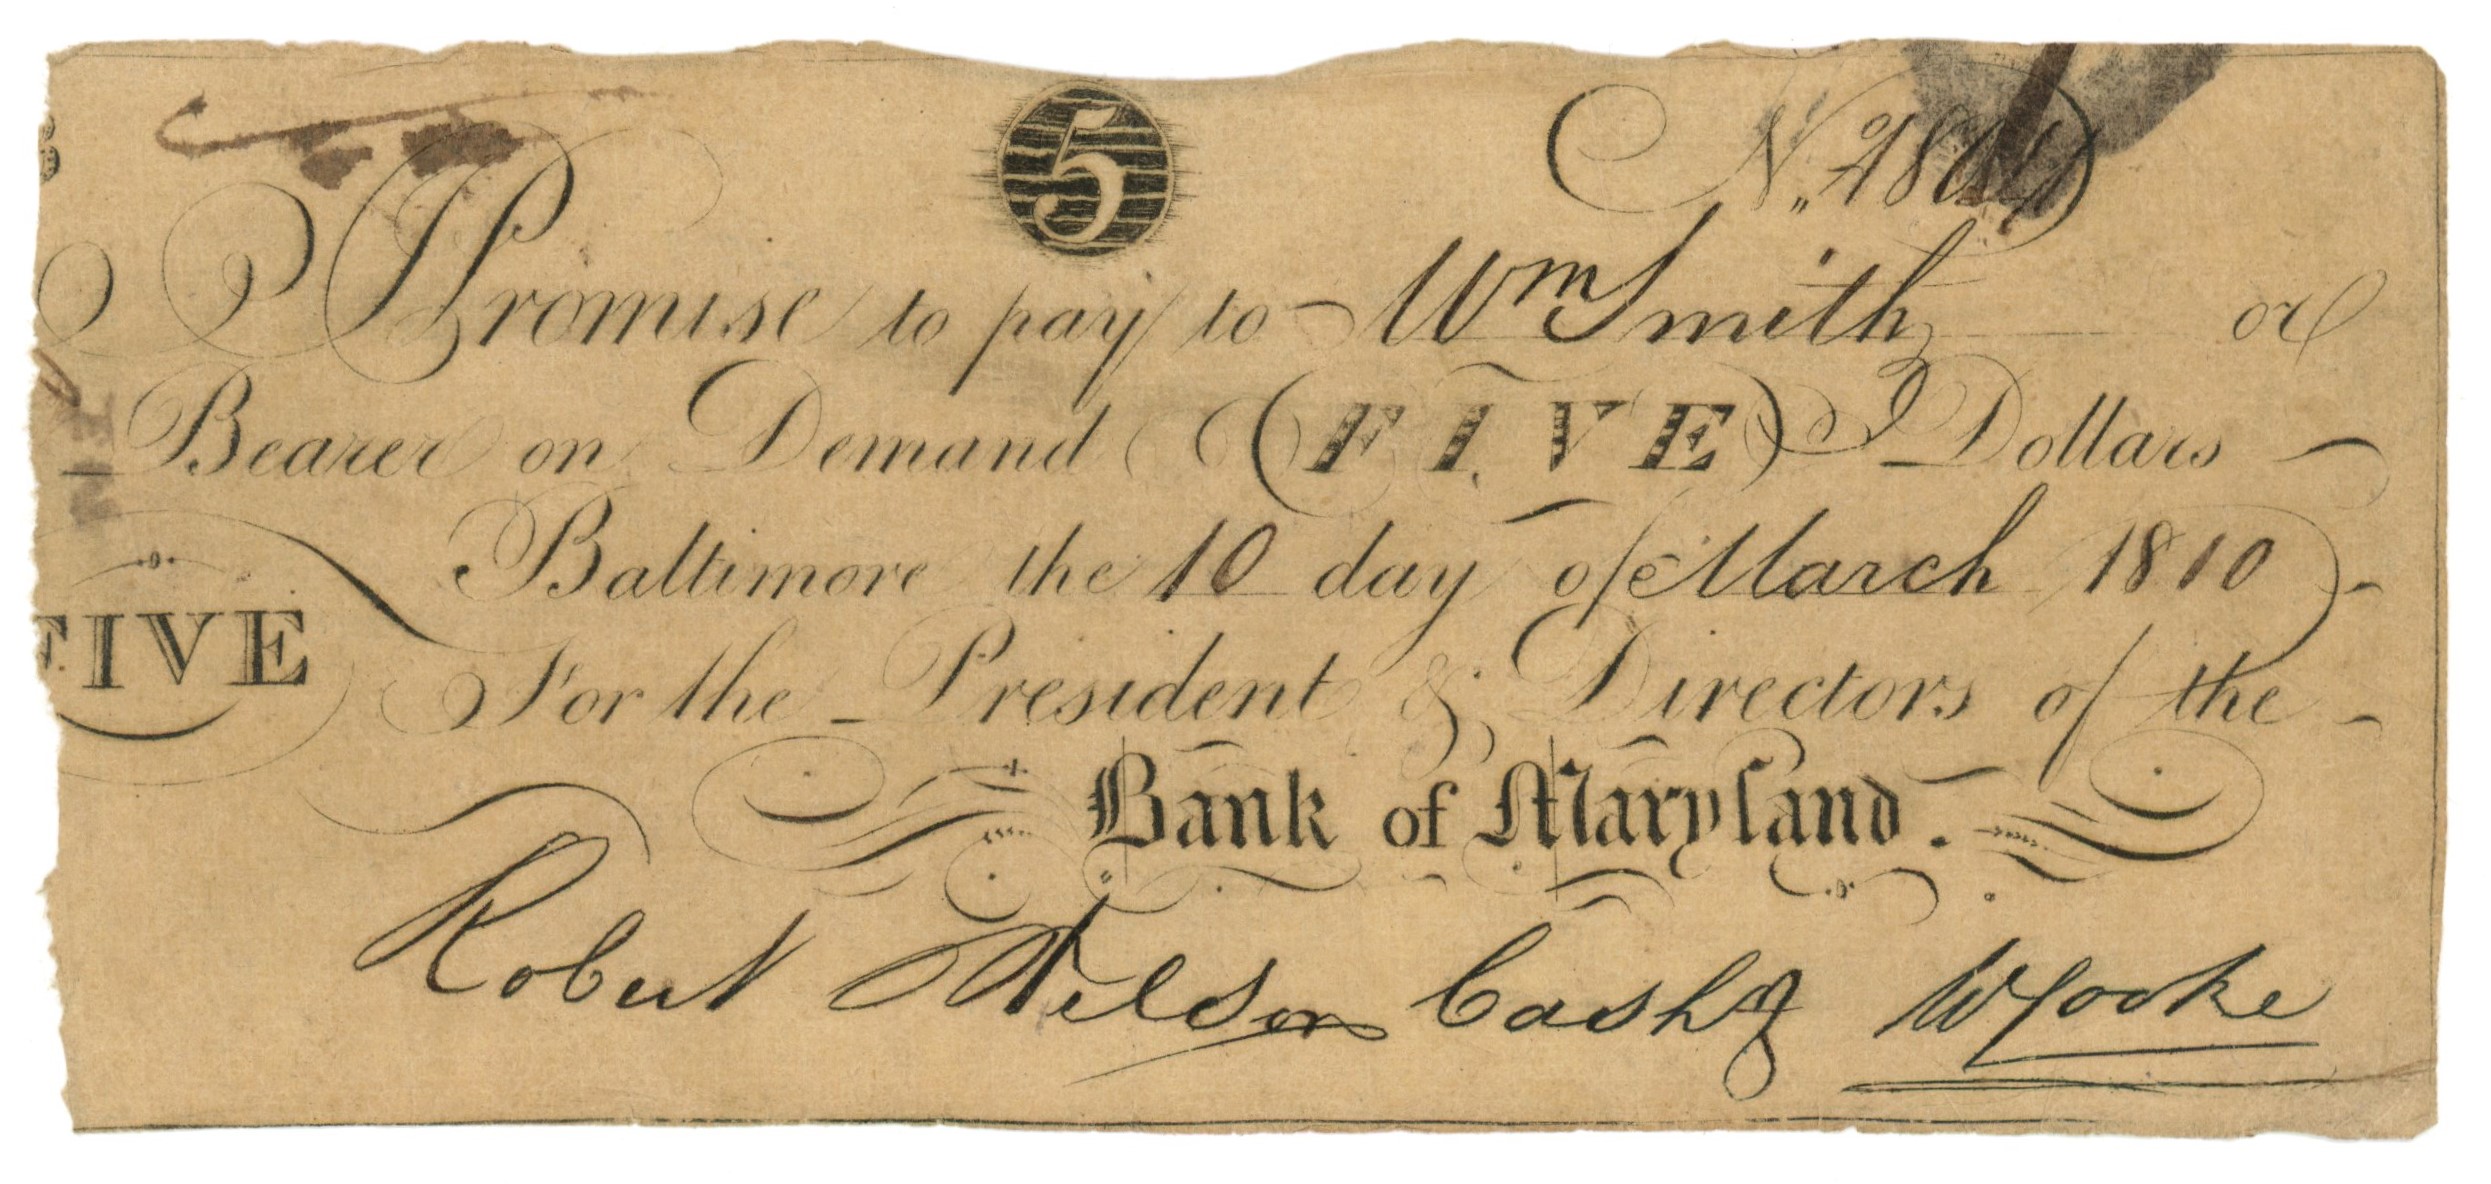 5
I Promise to pay to Wm Smith or
Bearer on Demand FIVE Dollars
Baltimore the 10 day of March 1810
FIVE
For the President & Directors of the
Bank of Maryland.
Robert Wilson Cashr W Cooke